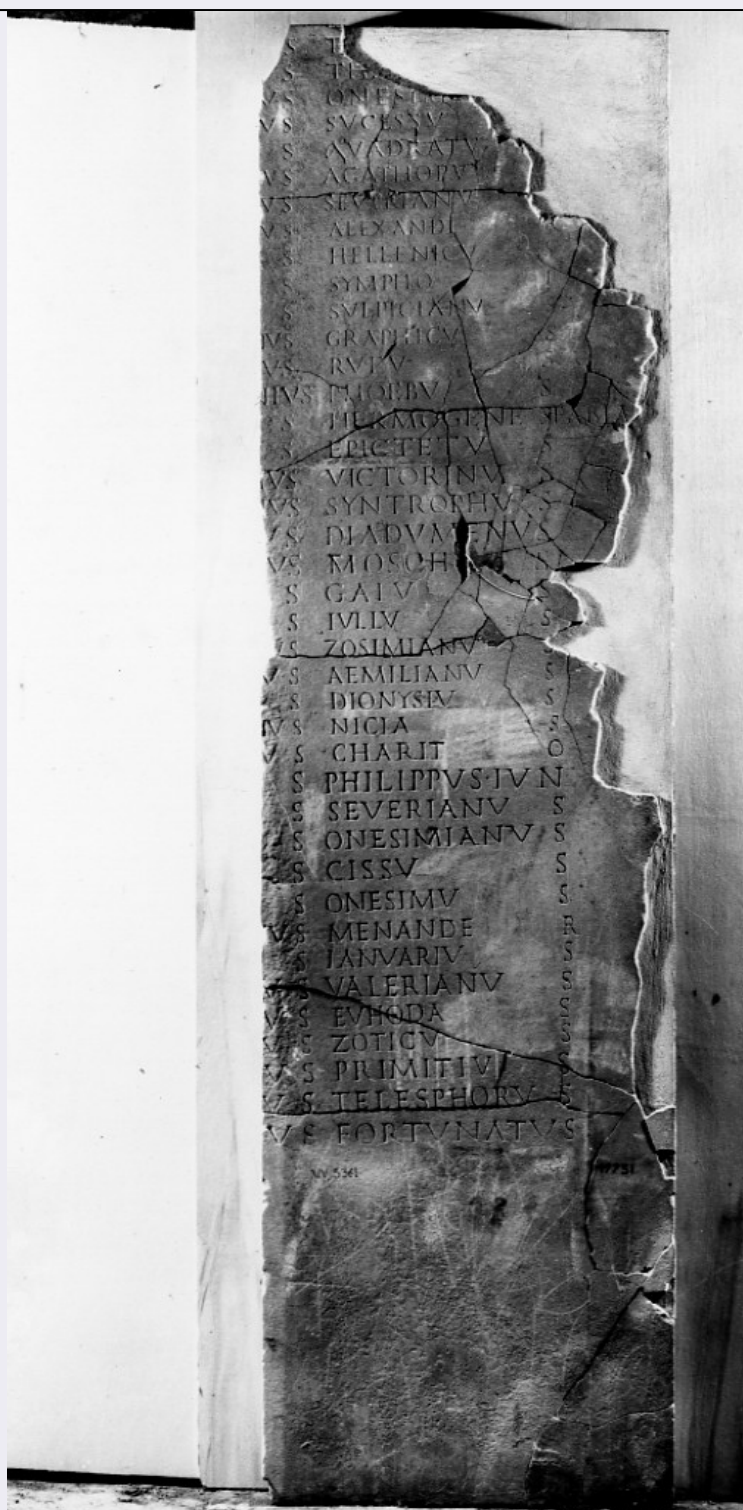 S T
S
VS ONES
VS SVCESSV
S QVADRATV
VS AGATHOPV
VS SEVERIANV
VS ALEXAND
S HELLENICV
S SYMPHO
S SVLPICIANV
IVS GRAPHICV S
VS RVFV
NIVS PHOEBV S
VS HERMOGENE S
S EPICTETV S
IVS VICTORINV S
VS SYNTROPHV S
VS DIADVMENV S
VS MOSCH S
S GAIV S
S IVLLV S
VS ZOSIMIANV
VS AEMILIANV S
S DIONYSIV S
IVS NICIA S
VS CHARIT O
S PHILIPPVS·IVN
S SEVERIANV S
S ONESIMIANV S
S CISSV S
S ONESIMV S
VS MENANDE R
S IANVARIV S
VS VALERIANV S
VS EVHODA S
VS ZOTICV S
VS PRIMITIV S
VS TELESPHORV S
VS FORTVNATVS